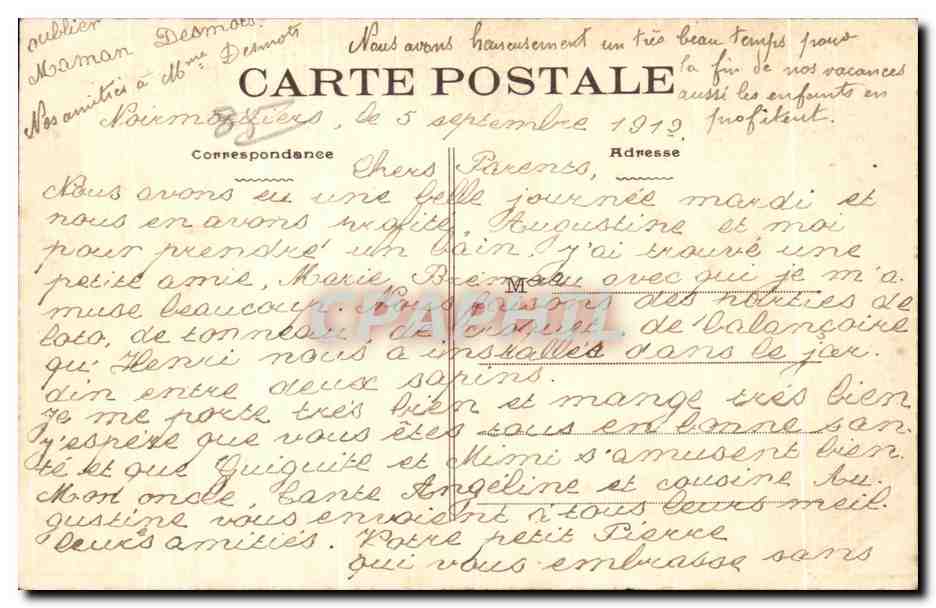 oublier
Maman Desmots.
Nos amitiés à Mme Desmots
Nous avons heureusement un très beau temps pour
la fin de nos vacances
aussi les enfants en
profitent.
CARTE POSTALE
85
Noirmoutiers, le 5 septembre 1912.
Correspondance
Adresse
Chers Parents,
Nous avons eu une belle journée mardi et
nous en avons profité, Augustine et moi
pour prendre un bain. J'ai trouvé une
petite amie, Marie avec qui je m'a-
M
muse beaucoup. Nous faisons des parties de
loto, de tonneau, de croquet, de balançoire
qu' Henri nous a installés dans le jar-
din entre deux sapins.
Je me porte très bien et mange très bien
j'espère que vous êtes tous en bonne san-
té et que Guiguite et Mimi s'amusent bien.
Mon oncle, tante Angéline et cousine Au-
gustine vous envoient à tous leurs meil-
leurs amitiés. Votre petit Pierre
qui vous embrasse sans
CPAPHIL